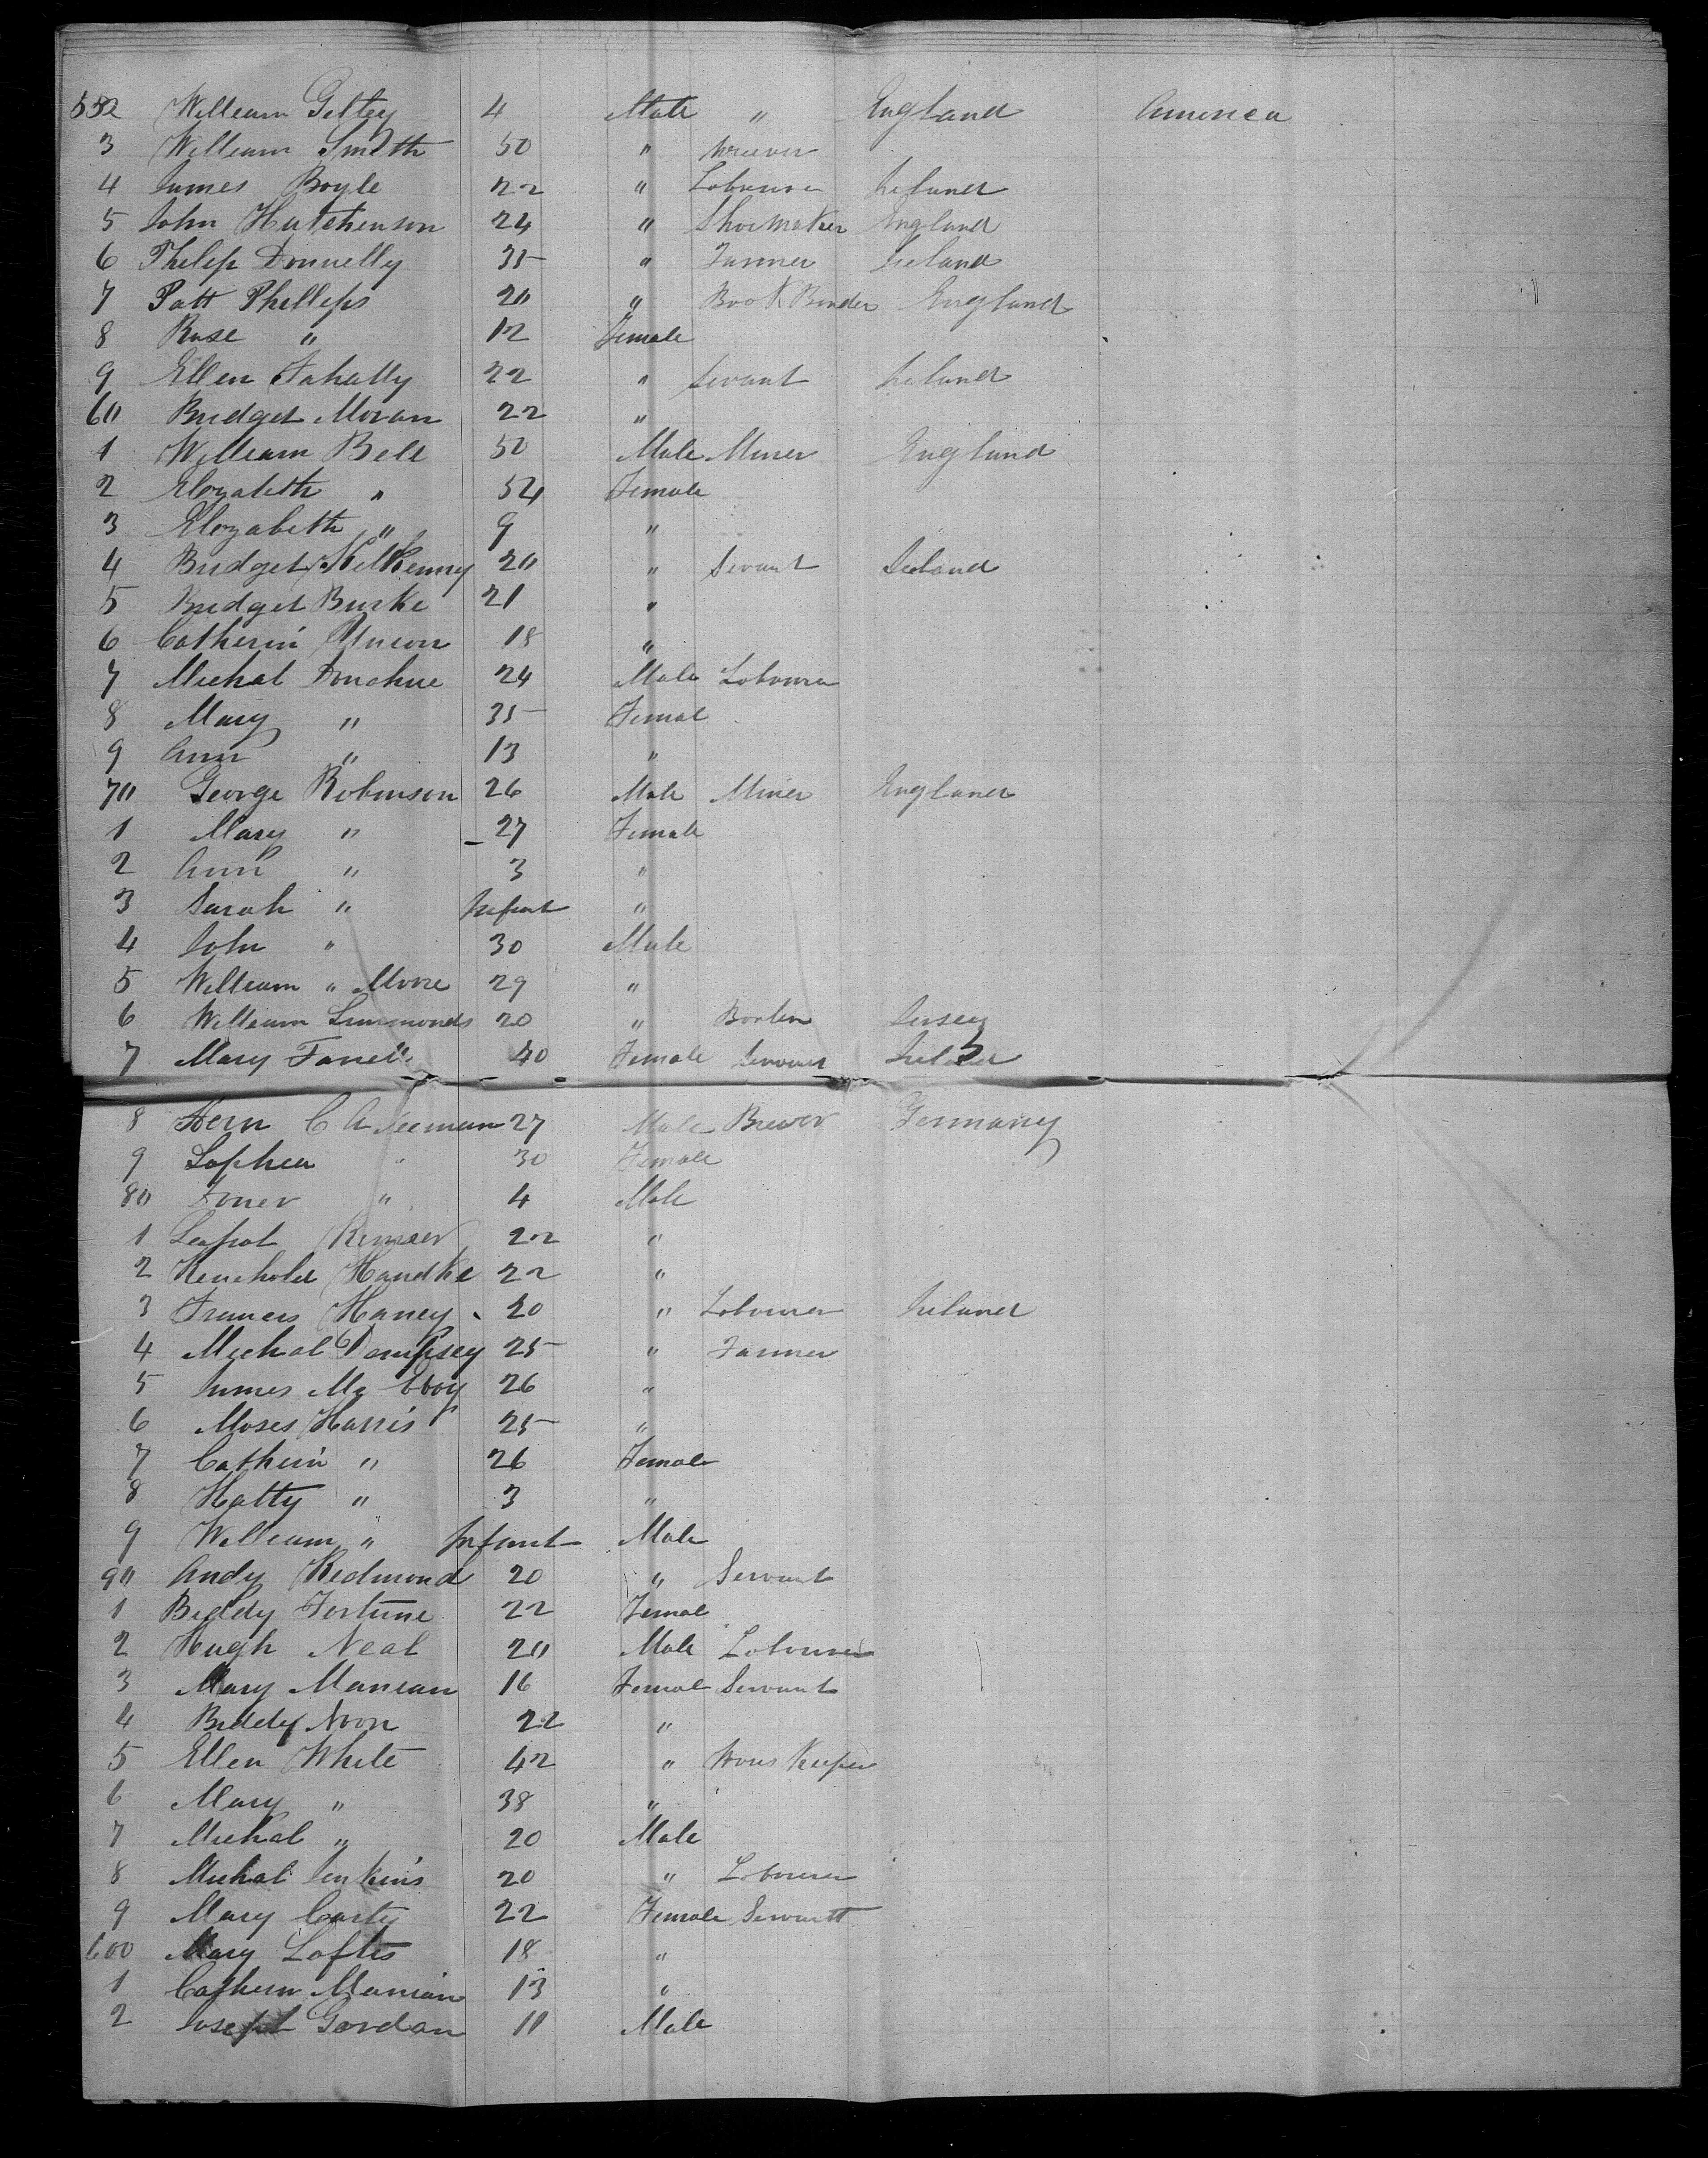 552 William Giltey 4 Male " England America
3 William Smith 50 " Weever
4 James Boyle 22 " Labourer Ireland
5 John Hutchenson 24 " Shoemaker England
6 Philip Donnelly 35 " Farmer Ireland
7 Patt Phillips 20 " Book Binder England
8 Rose " 12 Female
9 Ellen Fahally 22 " Servant Ireland
60 Bridget Moran 22 "
1 William Bell 50 Male Miner England
2 Elizabeth " 54 Female
3 Elizabeth " 9 "
4 Bridget KilKenny 20 " Servant Ireland
5 Bridget Burke 21 "
6 Catherin 18 "
7 Michal Donohue 24 Male Labourer
8 Mary " 35 Femal
9 Ann " 13 "
70 George Robinson 26 Male Miner England
1 Mary " 27 Female
2 Ann " 3 "
3 Sarah " Infant "
4 John " 30 Male
5 William " Moore 29 "
6 William Simmonds 20 " Jersey
7 Mary 40 Female Ireland
8 Hern C A 27 Male Brewer Germany
9 Sophia " 30 Female
80 " 4 Male
1 22 "
2 Handke 22 "
3 Frances Haney 20 " Labourer Ireland
4 Michal Dempsey 25 " Farmer
5 James Mc 26 "
6 Moses Harris 25 "
7 Catherin " 26 Female
8 Hatty " 3 "
9 William " Infant Male
90 Andy Redmond 20 " Servant
1 Biddy Fortune 22 Femal
2 Hugh Neal 20 Male Labourer
3 Mary Manean 16 Femal Servant
4 Biddy Noon 22 "
5 Ellen White 42 " Hous Keeper
6 Mary " 38 "
7 Michal " 20 Male
8 Michal Jenkins 20 " Labourer
9 Mary Carty 22 Female Servantt
600 Mary Loftis 18 "
1 Cathern 13 "
2 Joseph Gordan 11 Male